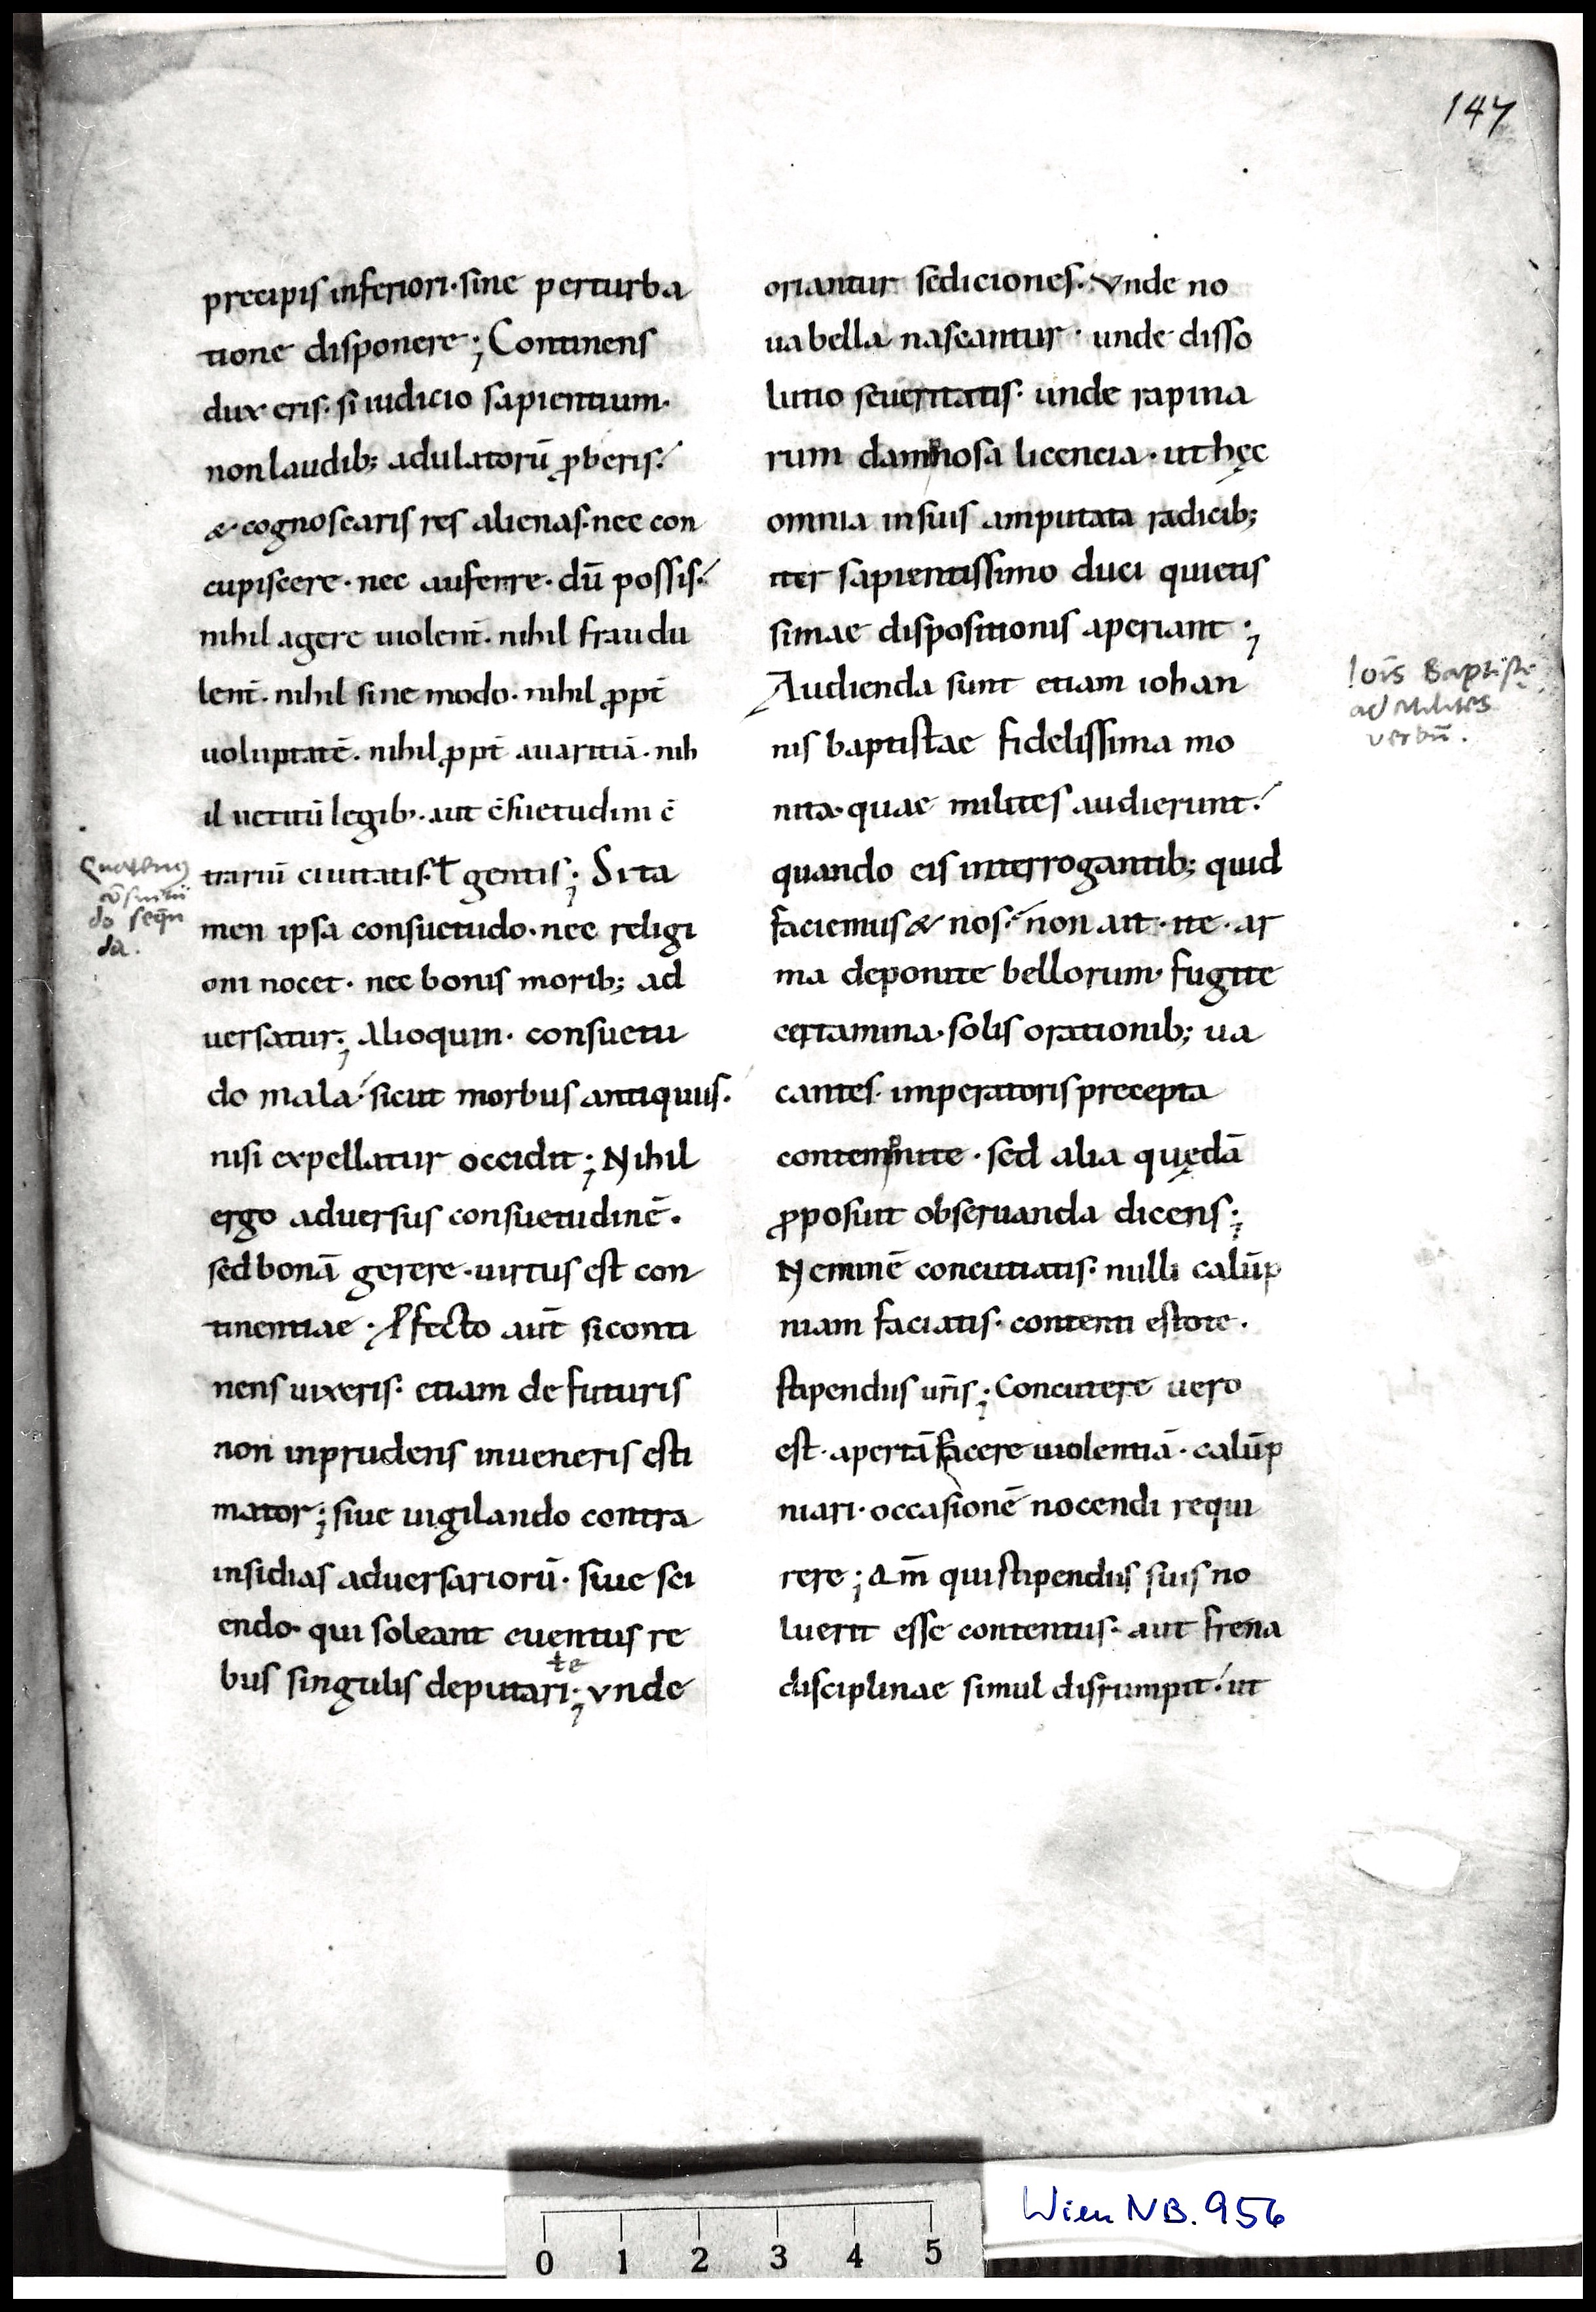 147
precipis inferiori · sine perturba
tione disponere ; Continens
dux eris · si iudicio sapientium ·
non laudib; adulatorū ꝓberis ·
& cognoscaris res alienas · nec con
cupiscere · nec auferre · dū possis ·
nihil agere uiolent̄ · nihil fraudu
lent̄ · nihil sine modo · nihil ꝓpt̄
uoluptatē · nihil ꝓpt̄ auaritiā · nih
il uetitū legib; · aut c̄suetudini c̄
trariū ciuitatis · ł gentis ; Si ta
men ipsa consuetudo · nec religi
oni nocet · nec bonis morib; ad
uersatur ; Alioquin · consuetu
do mala · sicut morbus antiquus ·
nisi expellatur occidit ; Nihil
ergo aduersus consuetudinē ·
sed bonā gerere · uirtus est con
tinentiae ; Ꝓfecto aūt si conti
nens uixeris · etiam de futuris
non inprudens inueneris esti
mator ; siue uigilando contra
insidias aduersariorū · siue sci
endo · qui soleant euentus re
te
bus singulis deputari ; vnde
Quatenꝰ
cōsuetu
do seqn̄
da.
oriantur sediciones · Vnde no
ua bella nascantur · unde disso
lutio seueritatis · unde rapina
rum damnosa licencia · ut hęc
omnia in suis amputata radicib;
iter sapientissimo duci quietis
simae dispositionis aperiant ;
Audienda sunt etiam iohan
nis baptistae fidelissima mo
nita · quae milites audierunt ·
quando eis interrogantib; quid
faciemus & nos · non ait · ite · ar
ma deponite bellorum · fugite
certamina · solis orationib; ua
cantes · imperatoris precepta
contemnite · sed alia quędā
ꝓposuit obseruanda dicens ;
Neminē concutiatis · nulli calūp
niam faciatis · contenti estote ·
stipendiis ur̄is ; Concutere uero
est · apertā facere uiolentiā · calūp
niari · occasionē nocendi requi
rere ; Am̄ qui stipendiis suis no
luerit esse contentus · aut frena
disciplinae simul disrumpit · ut
Ioīs Baptistę
ad Milites
verbū.
0 1 2 3 4 5
Wien NB. 956